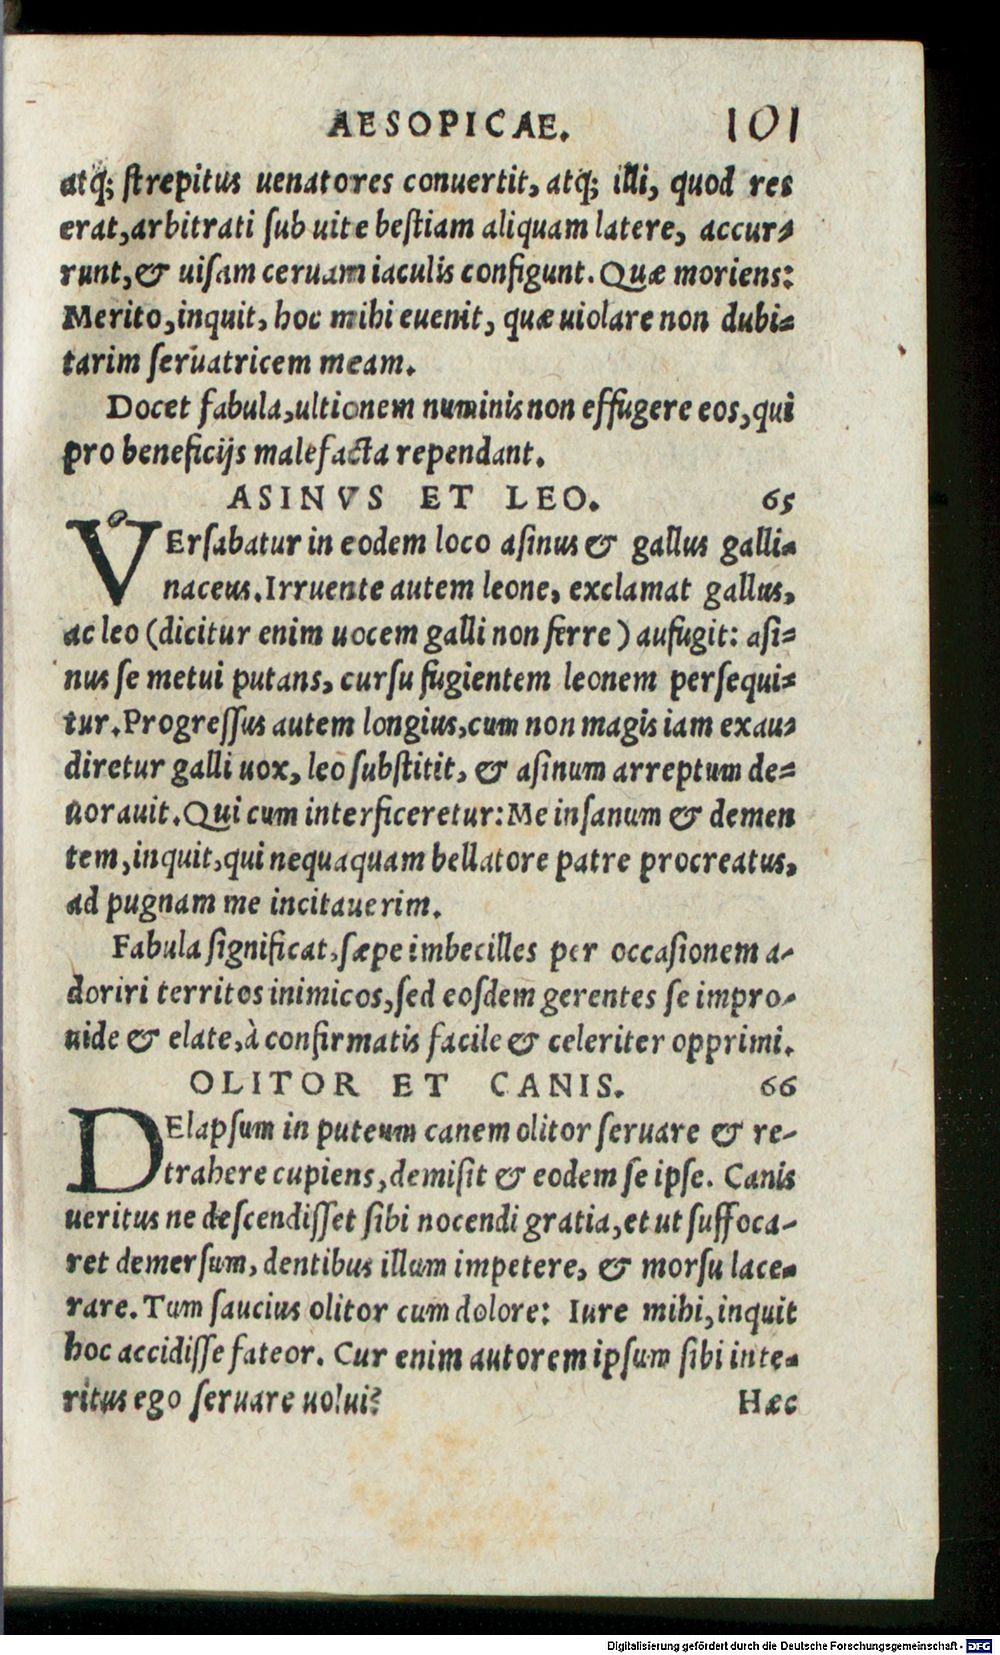 AESOPICAE. 101
atq; ſtrepitus uenatores conuertit, atq; illi, quod res
erat, arbitrati ſub uite beſtiam aliquam latere, accur-
runt, & uiſam ceruam iaculis configunt. Quæ moriens:
Merito, inquit, hoc mihi euenit, quæ uiolare non dubi-
tarim ſeruatricem meam.
Docet fabula, ultionem numinis non effugere eos, qui
pro beneficijs malefacta rependant.
ASINVS ET LEO. 65
VErſabatur in eodem loco aſinus & gallus galli-
naceus. Irruente autem leone, exclamat gallus,
ac leo (dicitur enim uocem galli non ferre) aufugit: aſi-
nus ſe metui putans, curſu fugientem leonem perſequi-
tur. Progreſſus autem longius, cum non magis iam exau-
diretur galli uox, leo ſubſtitit, & aſinum arreptum de-
uorauit. Qui cum interficeretur: Me inſanum & demen
tem, inquit, qui nequaquam bellatore patre procreatus,
ad pugnam me incitauerim.
Fabula ſignificat, ſæpe imbecilles per occaſionem a-
doriri territos inimicos, ſed eoſdem gerentes ſe impro-
uide & elate, à confirmatis facile & celeriter opprimi.
OLITOR ET CANIS. 66
DElapſum in puteum canem olitor ſeruare & re-
trahere cupiens, demiſit & eodem ſe ipſe. Canis
ueritus ne deſcendiſſet ſibi nocendi gratia, et ut ſuffoca-
ret demerſum, dentibus illum impetere, & morſu lace-
rare. Tum ſaucius olitor cum dolore: Iure mihi, inquit
hoc accidiſſe fateor. Cur enim autorem ipſum ſibi inte-
ritus ego ſeruare uolui? Hæc
Digitalisierung gefördert durch die Deutsche Forschungsgemeinschaft - DFG